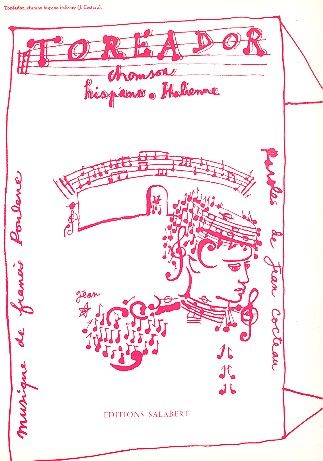 Toréador, chanson hispano-italienne (J. Cocteau).
TOREADOR
chanson
hispano-Italienne
musique de francis Poulenc
Paroles de Jean Cocteau
Jean
EDITIONS SALABERT